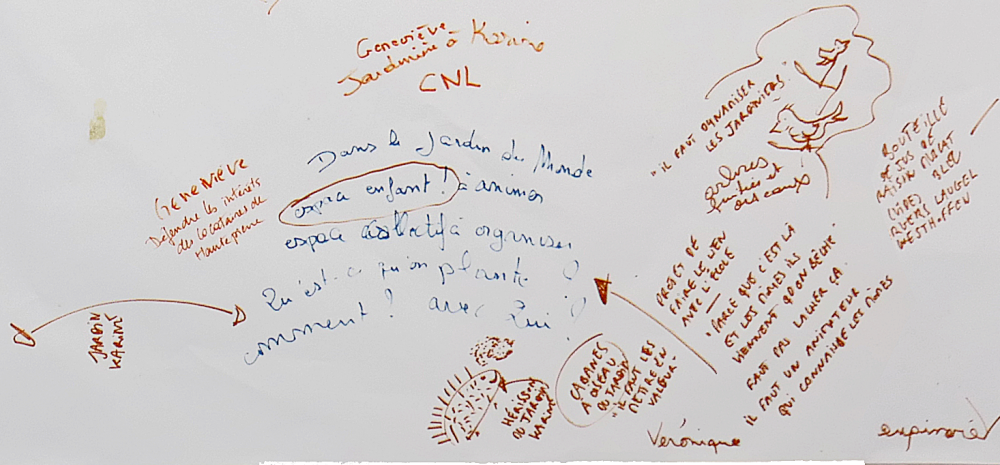 Geneviève
Jardinière à Karine
CNL
GENEVIÈVE
Défendre les intérêts
des locataires de
Hautepierre
Dans le Jardin du Monde
espace enfant ! à animer
espace collectif à organiser
Qu'est-ce qu'on plante ?
comment ! avec Qui ?
JARDIN
KARINE
HÉRISSON
DU JARDIN
KARINE
CABANES
À OISEAU
DU JARDIN
"IL FAUT LES
METTRE EN
VALEUR"
"IL FAUT DYNAMISER
LES JARDINIERS."
arbres
fruitiers et
oiseaux
BOUTEILLE
DE JUS DE
RAISIN
(VIDE) BLEU
RUCHERS LAUGEL
WESTHOFFEN
PROJET DE
FAIRE LE LIEN
AVEC L'ÉCOLE
"PARCE QUE C'EST LÀ
ET LES MÔMES ILS
VIENNENT QU'ON BÊCHE"
FAUT PAS LAISSER ÇA.
IL FAUT UN ANIMATEUR
QUI CONNAISSE LES MÔMES
Verónique